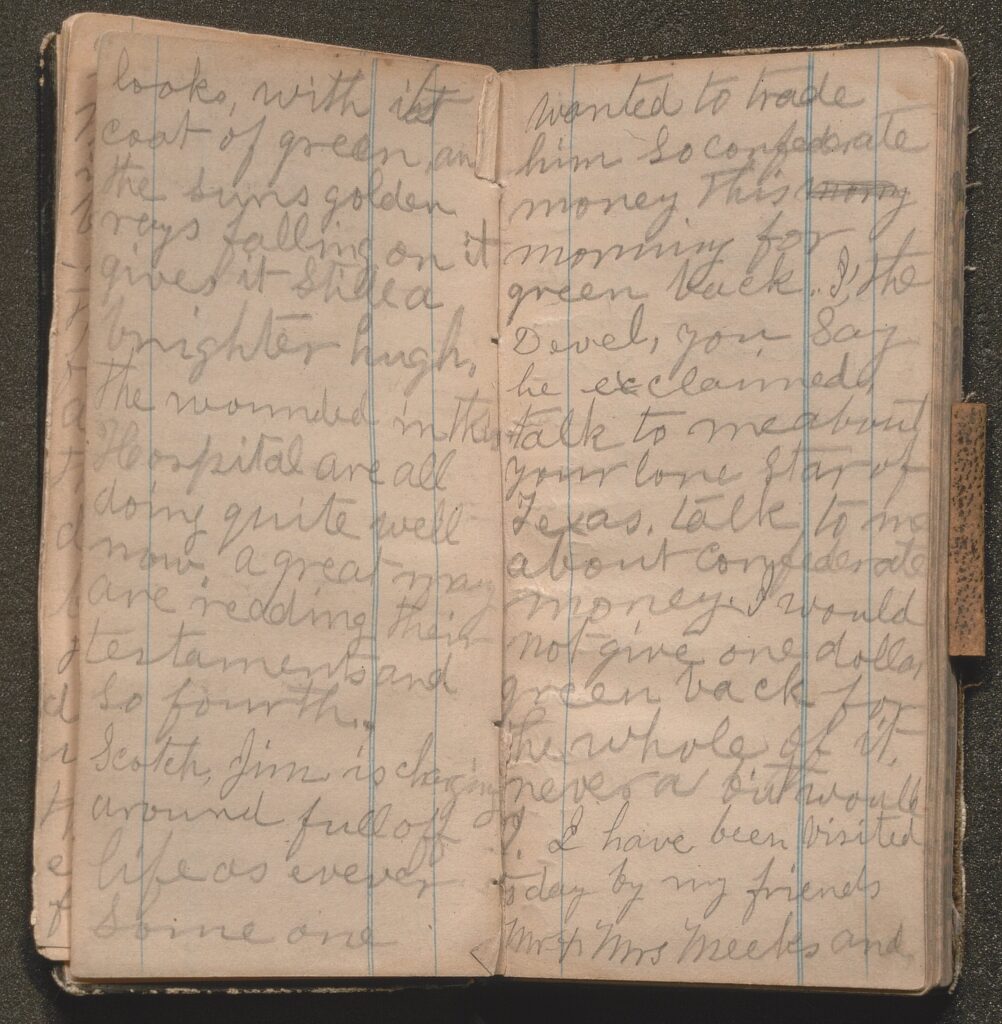 looks, with it
coat of green, an
the suns golden
rays falling on it
gives it still a
brighter hugh,
the wounded in this
Hospital are all
doing quite well
now, a great many
are reading their
testaments and
so fourth.
Scotch, Jim is
around full off
life as ever
Some one
wanted to trade
him $0 confederate
money this morny
morning for
green back. I, the
Devel, you say
he exclaimed,
talk to me about
your lone star of
Texas, talk to me
about confederate
money. I would
not give one dollar
green back for
the whole of it,
never a bit would
I. I have been visited
today by my friends
Mr & Mrs Meeks and